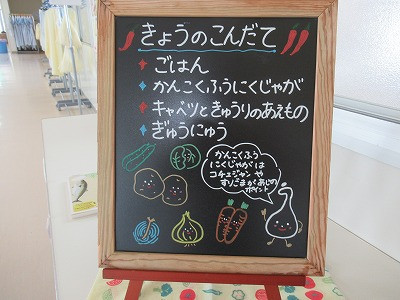 きょうのこんだて
ごはん
かんこくふうにくじゃが
キャベツときゅうりのあえもの
ぎゅうにゅう
かんこくふう
にくじゃがは
コチュジャンや
すりごまがあじの
ポイント